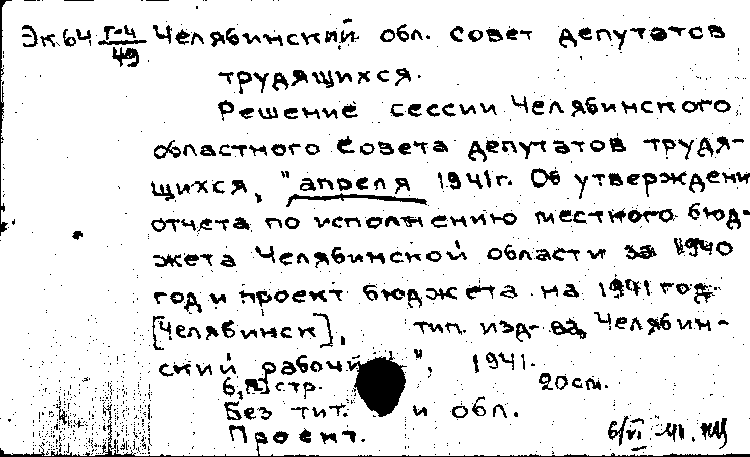 Эк64 Г-4/49 Челябинский обл. совет депутатов
трудящихся.
Решение сессии Челябинского
областного Совета депутатов трудя-
щихся, " апреля 1941г. Об утверждени
отчета по исполнению местного бюд-
жета Челябинской области за 1940
год и проект бюджета на 1941 год.
[Челябинск], тип. изд-ва, Челябин-
ский рабочий", 1941.
стр. 20 см.
Без тит. и обл.
Проект.
6/VI 41.